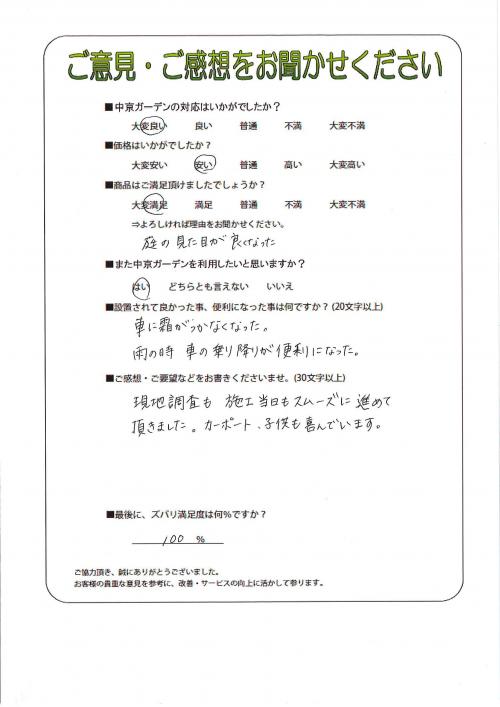 ご意見・ご感想をお聞かせください
■中京ガーデンの対応はいかがでしたか？
大変良い 良い 普通 不満 大変不満
■価格はいかがでしたか？
大変安い 安い 普通 高い 大変高い
■商品はご満足頂けましたでしょうか？
大変満足 満足 普通 不満 大変不満
⇒よろしければ理由をお聞かせください。
庭の見た目が良くなった
■また中京ガーデンを利用したいと思いますか？
はい どちらとも言えない いいえ
■設置されて良かった事、便利になった事は何ですか？(20文字以上)
車に霜がつかなくなった。
雨の時 車の乗り降りが便利になった。
■ご感想・ご要望などをお書きくださいませ。(30文字以上)
現地調査も 施工当日もスムーズに進めて
頂きました。カーポート、子供も喜んでいます。
■最後に、ズバリ満足度は何％ですか？
100 ％
ご協力頂き、誠にありがとうございました。
お客様の貴重な意見を参考に、改善・サービスの向上に活かして参ります。